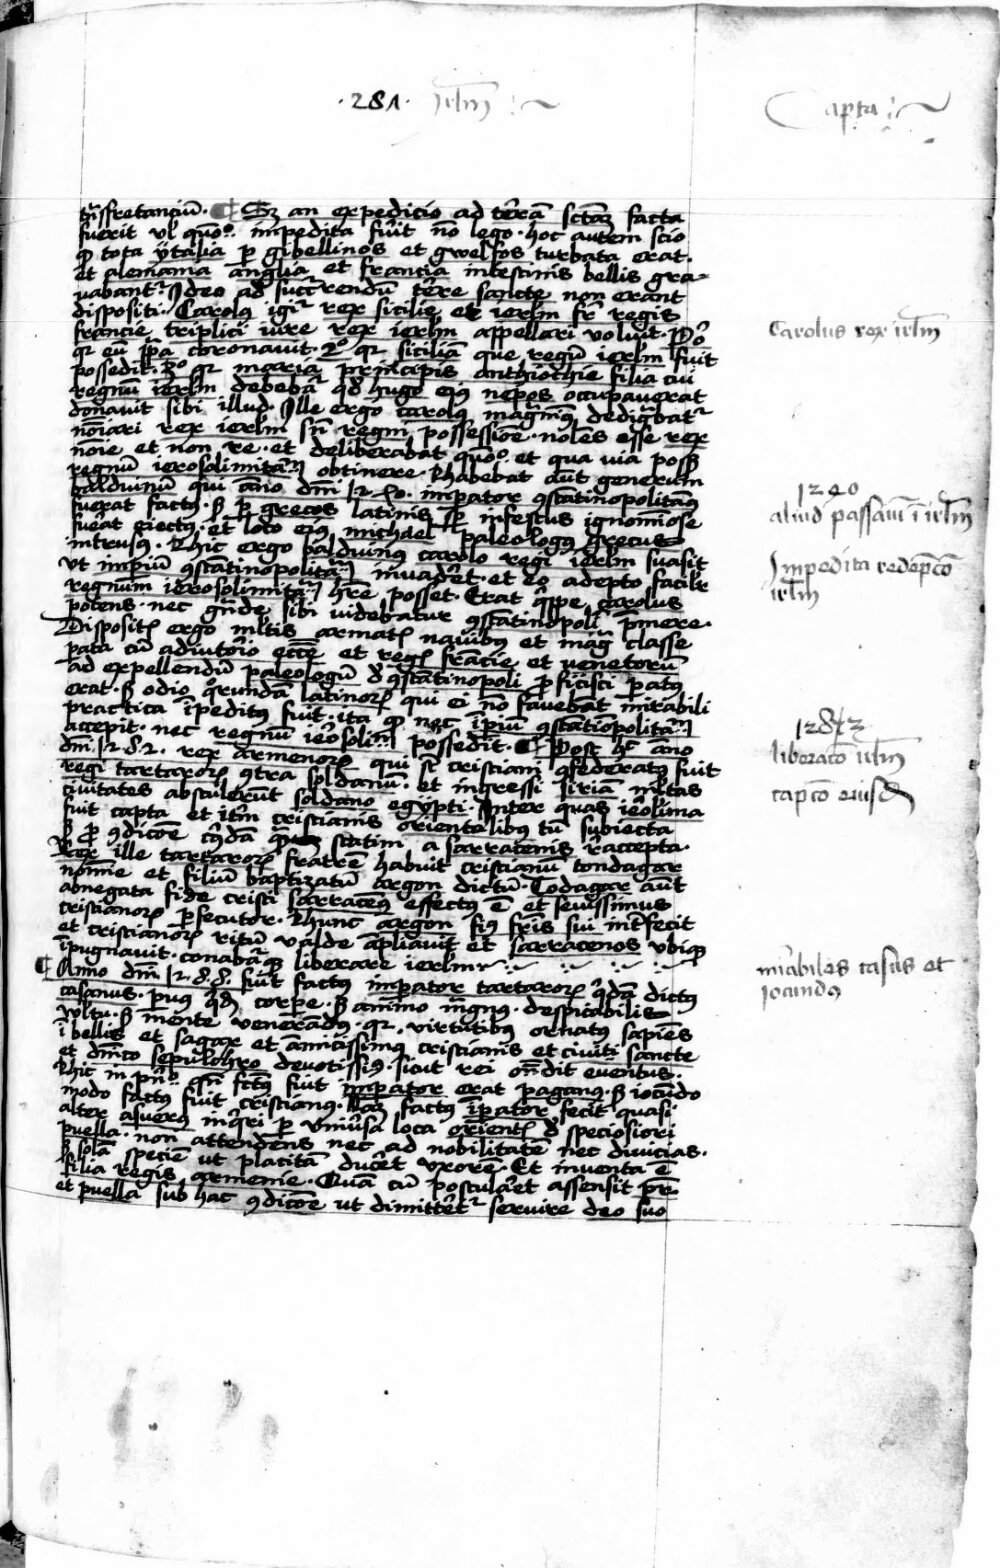 ·281· Jrlm̄
Capta
tͣnsfretanciū. ¶ Sꝫ an expedicio ad t̄rā sctāꝫ facta
fuerit vl quoͦ. impedita fūit nō lego. hoc autem scio
ꝙ tota ytalia ꝑ gibellinos et gwelfos turbata erat.
et alemania anglia et francia intestinis bellis gra-
uabantᷣ Jdeo ad succͬrendū t̄re sancte non erant
dispositi. Carolꝰ igiᷣ rex sicilie et ierlm fr̄ regis
francie triplici iure rex ierlm appellari voluit. Pͦ
qꝛ eū pp̄a coronauit. 2ͦ qꝛ siciliā que regū ierlm fuit
possedit. 3ͦ qꝛ maria principis anthiochie filia cui
regnū ierlm debebaᷣ qd hugo eiꝰ nepos occupauerat
donauit sibi illud. Jlle ergo carolꝰ magͣnimꝰ dedigͣbatᷣ
nōiari rex ierlm sn̄ regni possessiōe. noles esse rex
nōie et non re. et deliberabat quoͦ et qua via possꝫ
regnū ierosolimitaͫ obtinere. Rhabebat aūt generum
balduinū qui āno dm̄i 12 40. impator ꝯstatinopolitāꝰ
fuerat factꝰ. sꝫ ꝑ grecos latinis sꝑ infestus ignomīose
fūat eiectꝰ. et loco eiꝰ michael paleologꝰ grecus
intrusꝰ. Rhic ergo balduinꝰ carolo regi ierlm suasit
vt impiū ꝯstatinopolitaͫ inuad̄et. et eo adepto facilr
regnum ierosolimitaͫ h̄re posset. Erat qͥppe carolus
potens. nec gͣnde sibi videbatur ꝯstatinopoli p̄mere.
Dispositꝭ ergo mltis armatꝭ nauibꝰ et magͣ classe
pata cū adiutorio ecc̄e et regꝭ francie et venetorū
ad expellendū paleologū d̄ ꝯstatinopoli ꝓficisci patꝰ
erat. sꝫ odio qͦrundā latinorꝝ qui ei nō fauebāt mirabili
practica īpeditꝰ fuit. ita ꝙ nec īpiū ꝯstatiopolitaͫ
accepit. nec regnū ierosoliͫ possedit. ¶ Post hͨ āno
dm̄i 1282. rex armenorꝝ qui st̄ cristiani ꝯfederatꝰ fuit
regi tartarorꝝ ꝯtra soldanū. et ingressi siriā mltas
ciuitates abstulerūt soldano egypti. Jnter quas ierolima
fuit capta et itm̄ cristianis orientalibꝰ tū subiecta
sꝫ ꝓ ꝯdicōe statim a sarracenis r̄accepta.
Rex ille tartarorꝝ fratrē habuit cristianū tondagar
nomīe et filiū baptizatū argon dictū. Codagar aūt
abnegata fide cristi sarracenꝰ effectꝰ ē et seuissimus
cristianorꝝ ꝑsecutor. Rhunc argon fiꝰ fr̄is sui int̄fecit
et cristianorꝝ ritū valde ampliauit et sarracenos vbiqꝫ
īpugnauit. conabāᷣ qꝫ liberare ierlm
¶ Anno dm̄i 1288. fuit factꝰ impator tartarorꝝ qͥdā dictꝰ
casanus. puꝰ qͥd̄ corpe. sꝫ animo mgͣnꝰ. despicabilis
vultu. sꝫ mente venerādꝰ. qꝛ virtutibꝰ ornatꝰ sapiēs
ī bellis et sagax et amicissimꝰ cristianis et ciuiti sancte
et dm̄ico sepulchro deuotissiꝰ. sicut rei on̄dit euentus.
Rhic in pn̄ͦ qn̄ fctꝰ fuit impator erat paganꝰ. sꝫ iocūdo
modo factꝰ fuit cristianꝰ. Nā factꝰ īpator fecit quasi
alter asuerꝰ inqͥri ꝑ vniūsa loca orientꝭ d̄ speciosiori
puella. non attendens nec ad nobilitatē nec diuicias.
sꝫ solā speciē ut placitā duc̄et vxorē. Et inuenta ē
filia regis armenie. Quā cū postular̄et assensit pr̄
et puella sub hac ꝯdicōe ut dimitt̄etᷣ seruire deo suo
Carolus rex irlm̄
1240
aliud passaiū ī irlm̄
Jmpedita redempͨō
irlm̄
1282
liberacō irlm̄
capcō eiusd
mīabiles casus et
iocundꝰ